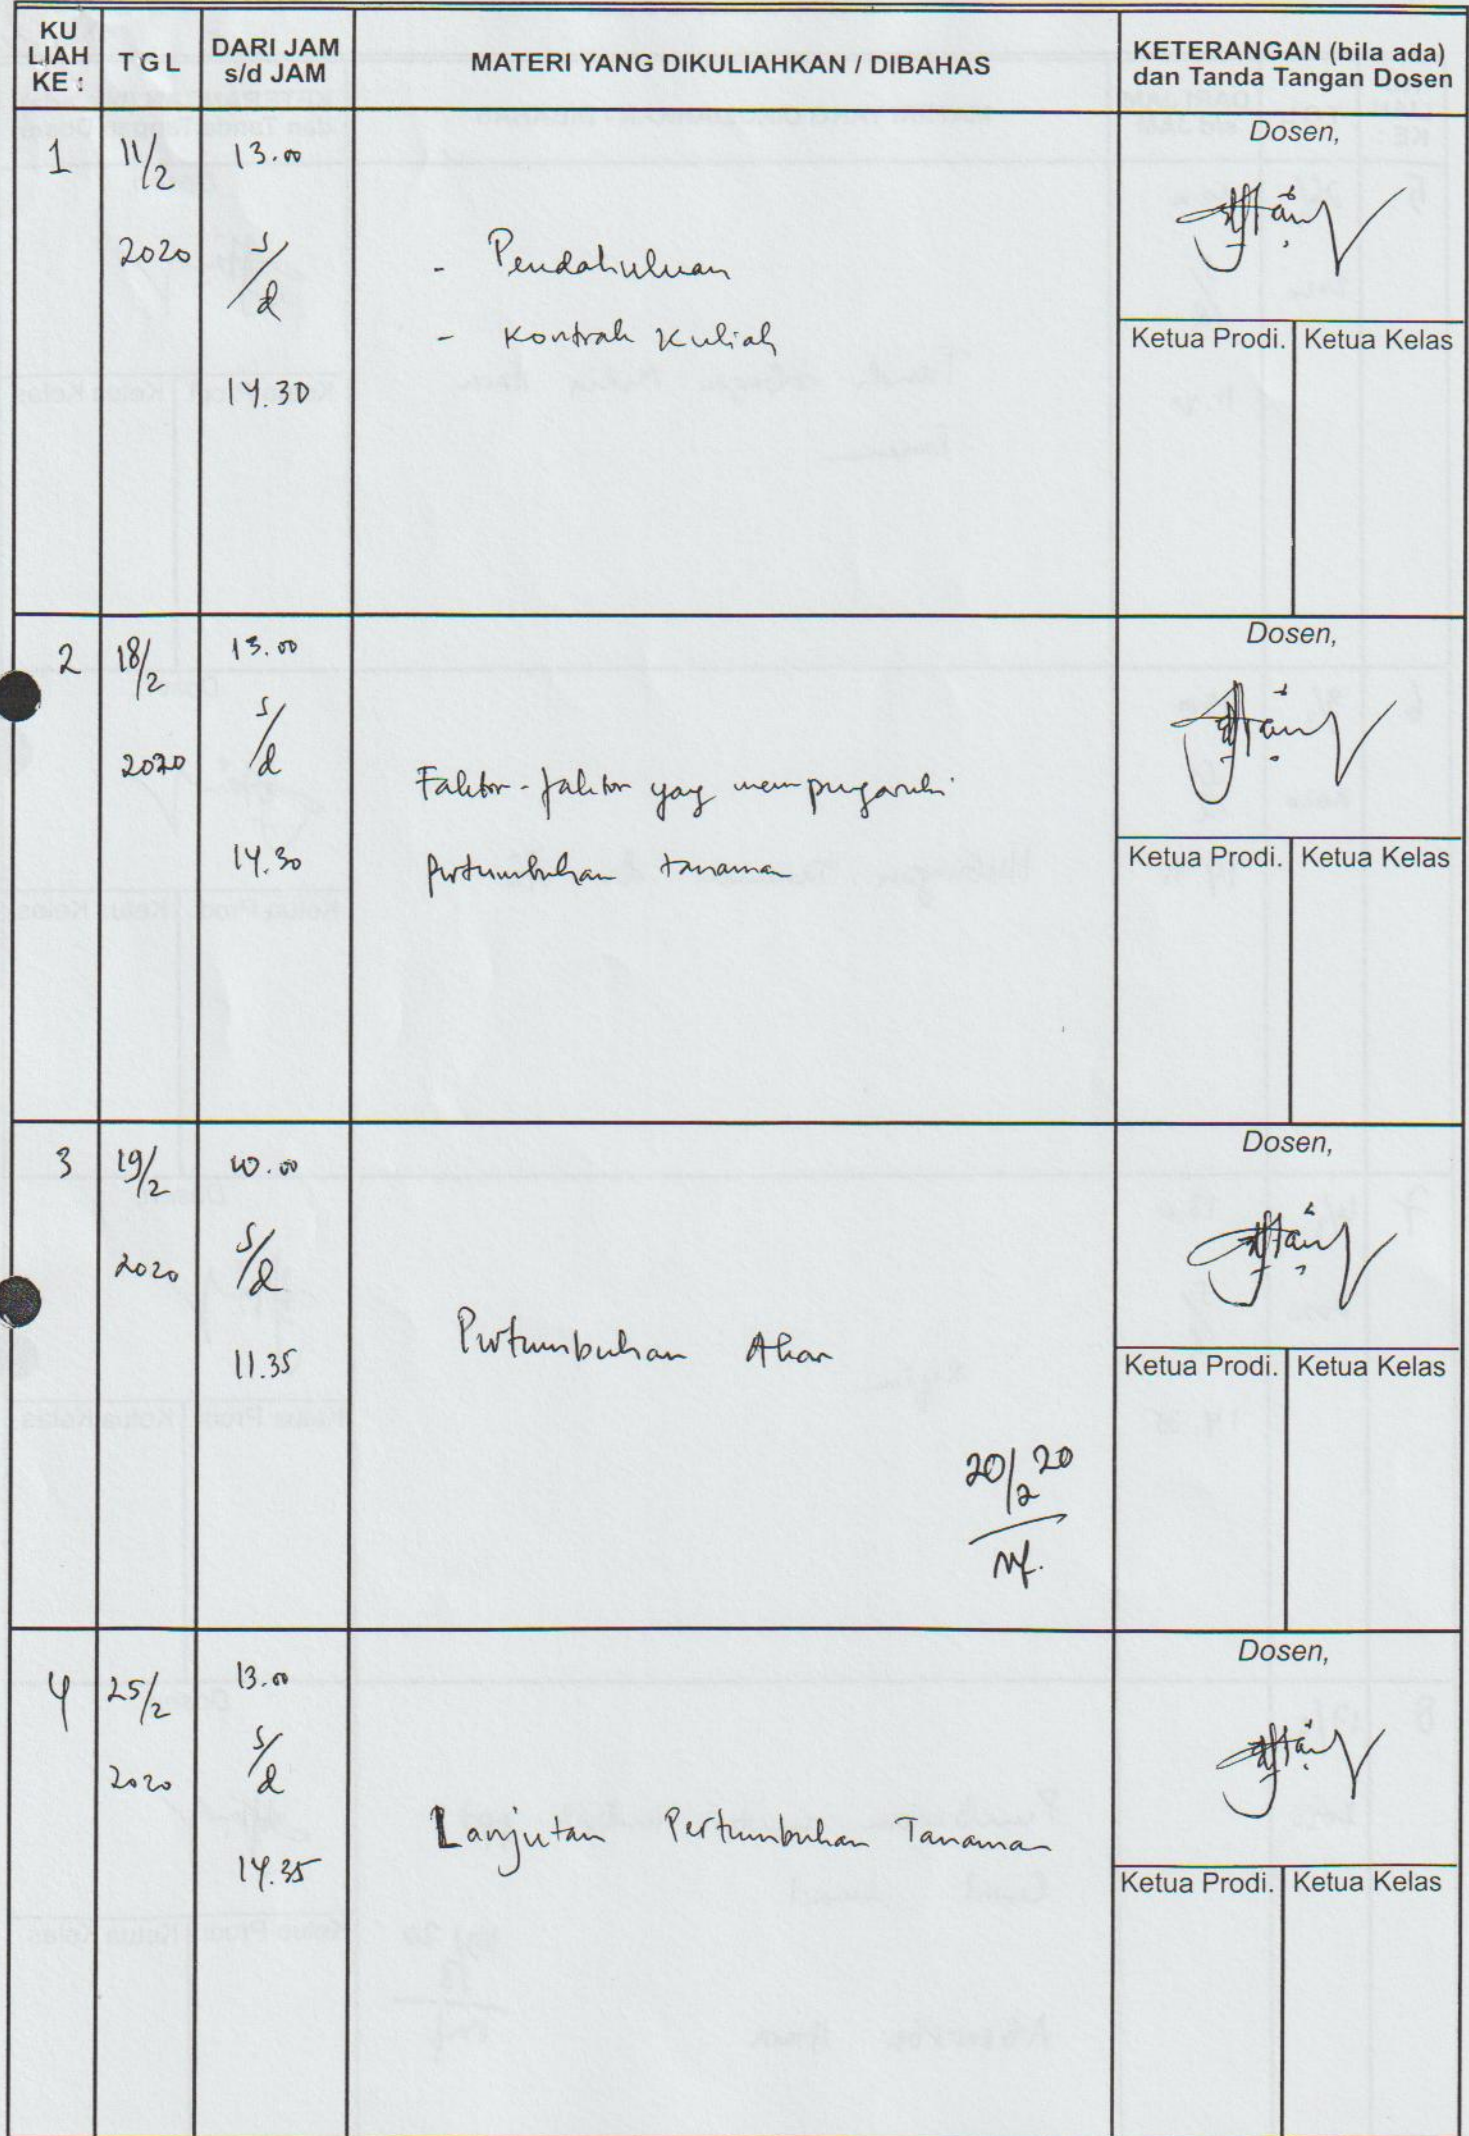 KU
LIAH
KE :
TGL
DARI JAM
s/d JAM
MATERI YANG DIKULIAHKAN / DIBAHAS
KETERANGAN (bila ada)
dan Tanda Tangan Dosen
1
11/2
2020
13.00
s/d
14.30
- Pendahuluan
- Kontrak Kuliah
Dosen,
Ketua Prodi.
Ketua Kelas
2
18/2
2020
13.00
s/d
14.30
Faktor-faktor yag mempengaruhi
pertumbuhan tanaman
Dosen,
Ketua Prodi.
Ketua Kelas
3
19/2
2020
10.00
s/d
11.35
Pertumbuhan Akar
20/2 20
Dosen,
Ketua Prodi.
Ketua Kelas
4
25/2
2020
13.00
s/d
14.35
Lanjutan Pertumbuhan Tanaman
Dosen,
Ketua Prodi.
Ketua Kelas